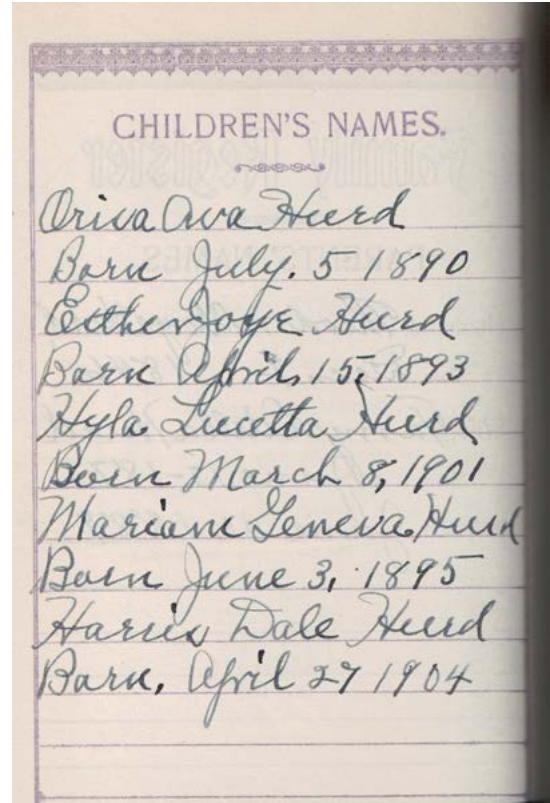 CHILDREN'S NAMES.
Oriva Ava Hurd
Born July. 5 1890
Esther Joye Hurd
Born April, 15, 1893
Hyla Lucetta Hurd
Born March 8, 1901
Mariam Geneva Hurd
Born June 3, 1895
Harris Dale Hurd
Born, April 27 1904